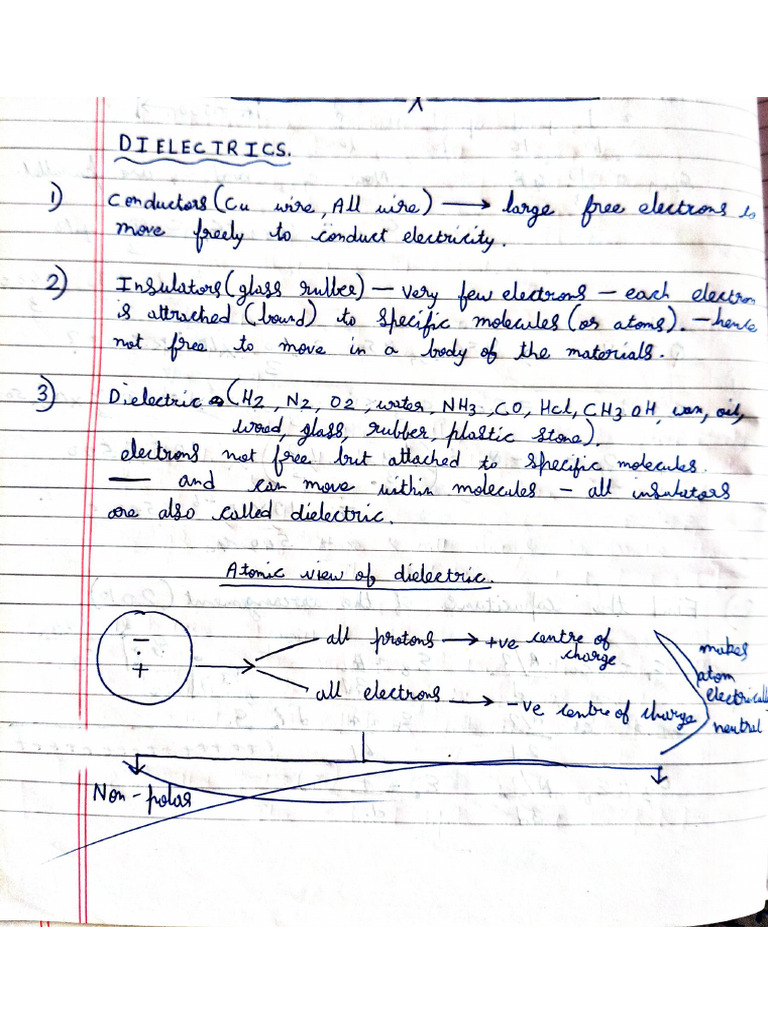 DIELECTRICS.
1) Conductors (Cu wire, All wire) → large free electrons to
move freely to conduct electricity.
2) Insulators (glass rubber) — very few electrons — each electron
is attached (bound) to specific molecules (or atoms). — hence
not free to move in a body of the materials.
3) Dielectric (H2, N2, O2, water, NH3, CO, Hcl, CH3OH, wax, oil,
wood, glass, rubber, plastic stone).
electrons not free but attached to specific molecules.
— and can move within molecules — all insulators
are also called dielectric.
Atomic view of dielectric.
all protons → +ve centre of
charge
all electrons → -ve centre of charge
makes
atom
electrically
neutral
Non-polar